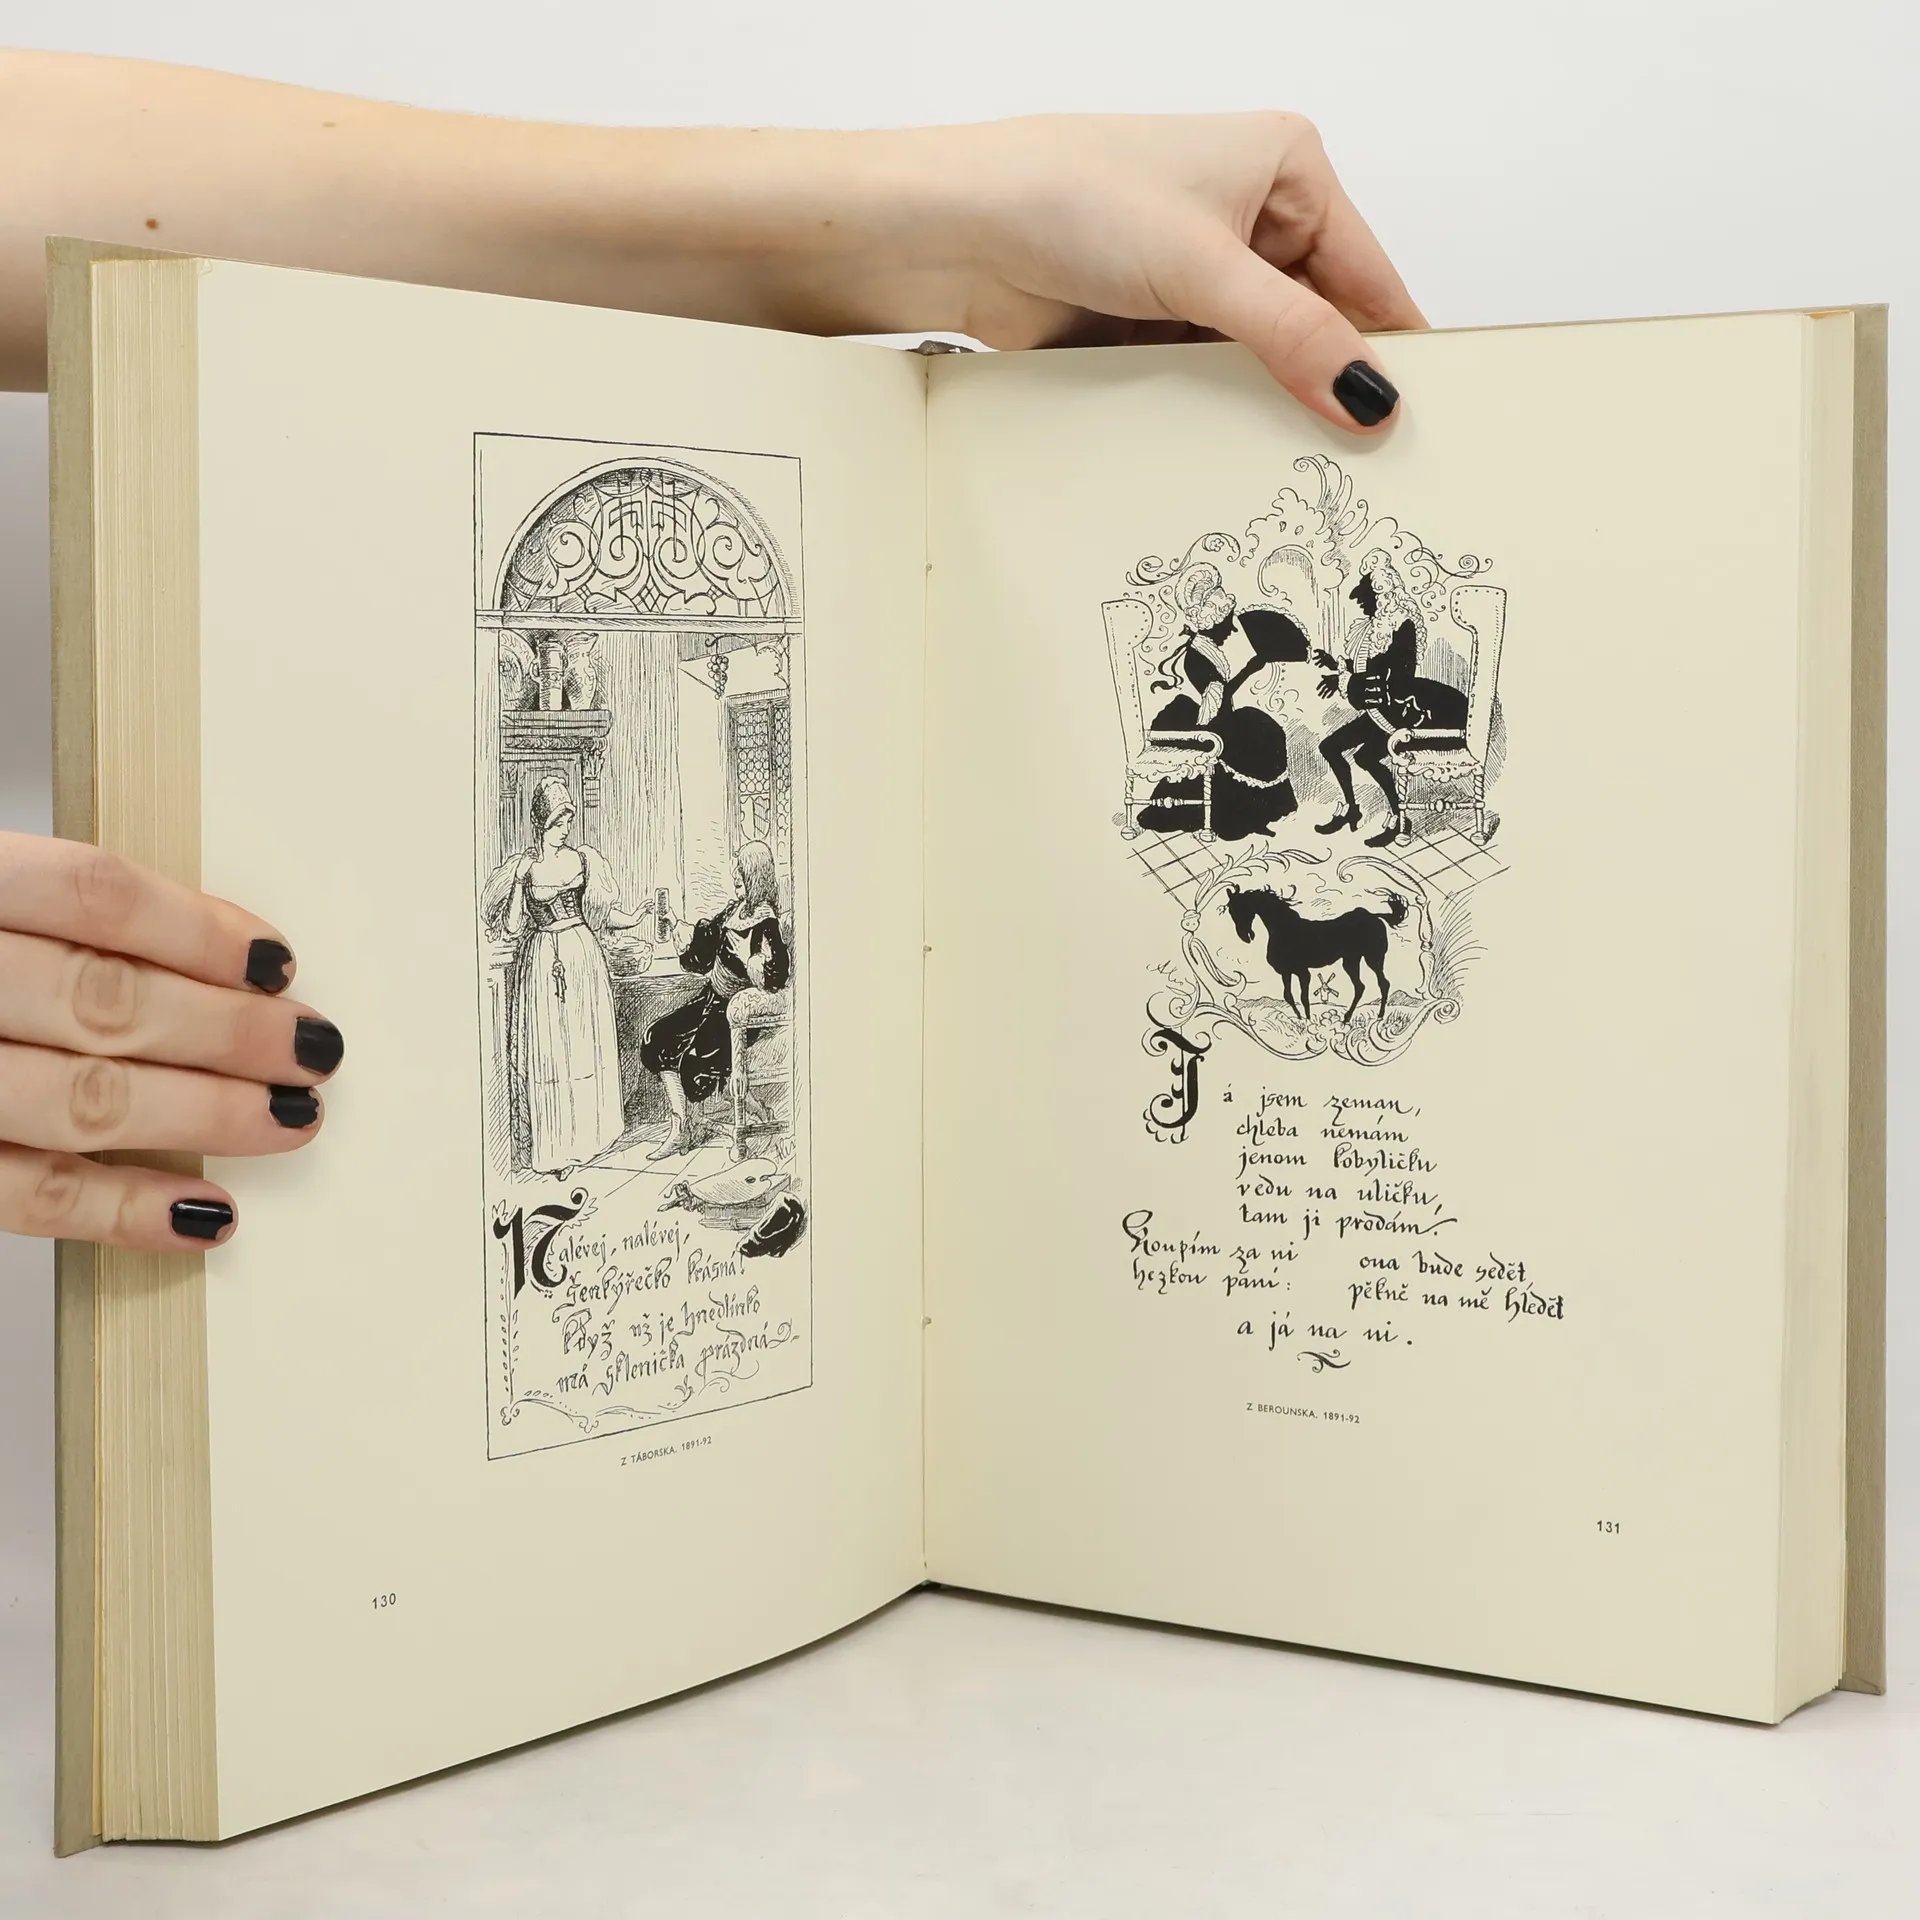 Nalévej, nalévej,
šenkýřečko krásná!
když už je hnedlinko
má sklenička prázdná
Z TÁBORSKA. 1891-92
130
Já jsem zeman,
chleba nemám
jenom kobyličku
vedu na uličku,
tam ji prodám.
Koupím za ni
hezkou pani:
ona bude sedět,
pěkně na mě hledět
a já na ni.
Z BEROUNSKA. 1891-92
131